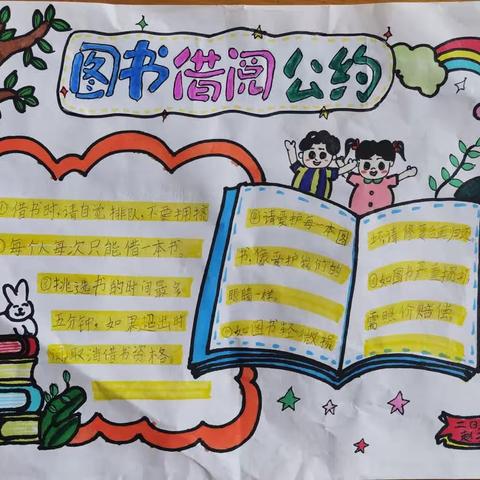 图书借阅公约
①借书时,请自觉排队,不要拥挤
②每个人每次只能借一本书。
③挑选书的时间最多
五分钟,如果超出时
间取消借书资格。
④请爱护每一本图
书,像爱护我们的
眼睛一样。
⑤如图书轻微损
坏,请修复后归还
⑥如图书严重损坏
需照价赔偿